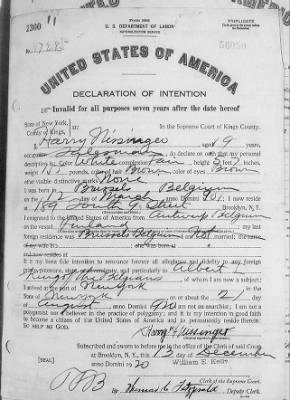 Form 2203
U. S. DEPARTMENT OF LABOR
NATURALIZATION SERVICE
2300
UNITED STATES OF AMERICA
DECLARATION OF INTENTION
Invalid for all purposes seven years after the date hereof
State of New York,
County of Kings,
In the Supreme Court of Kings County.
I, Harry aged 19 years,
occupation Salesman, do declare on oath that my personal
description is: Color White, complexion Fair, height 5 feet 7 inches,
weight pounds, color of hair Brown, color of eyes Brown
other visible distinctive marks None
I was born in Brussels Belgium
on the 12 day of March, anno Domini 1901; I now reside
at 189 South 9 Street Brooklyn, N. Y.
I emigrated to the United States of America from Antwerp Belgium
on the vessel Finland; my last
foreign residence was Brussels Belgium; I am Not married; the name
of my wife is; she was born at
It is my bona fide intention to renounce forever all allegiance and fidelity to any foreign
prince, potentate, state, or sovereignty, and particularly to Albert
King of the Belgians, of whom I am now a subject;
I arrived at the port of New York, in the
State of New York, on or about the 21 day
of August, anno Domini 1920; I am not an anarchist; I am not a
polygamist nor a believer in the practice of polygamy; and it is my intention in good faith
to become a citizen of the United States of America and to permanently reside therein:
SO HELP ME GOD.
Subscribed and sworn to before me in the office of the Clerk of said Court at
Brooklyn, N. Y., this 13 day of December
anno Domini 1920
[SEAL]
William E. Kelly
Clerk of the Supreme Court.
By Thomas Fitzgerald, Deputy Clerk.